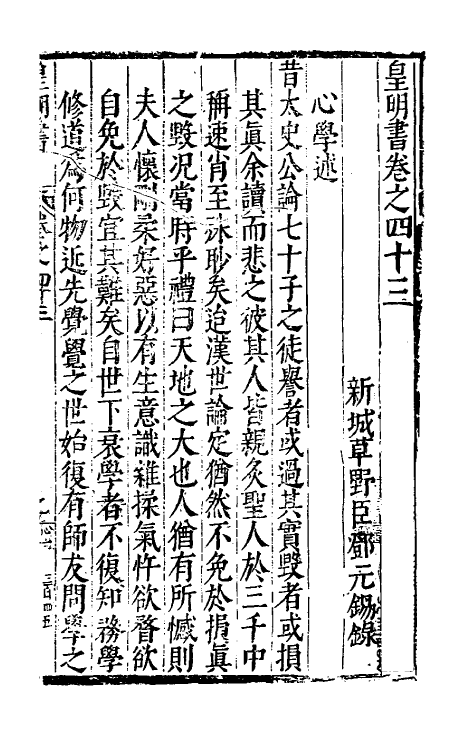 皇明書卷之四十三
新城草野臣鄧元錫錄
心學述
昔太史公論七十子之徒譽者或過其實毀者或損
其眞余讀而悲之彼其人皆親炙聖人於三千中
稱速肖至沬眇矣迨漢世論定猶然不免於損眞
之毀况當時乎禮曰天地之大也人猶有所憾則
夫人懷剛柔好惡以有生意識雜揉氣忤欲瞀欲
自免於毀宜其難矣自世下衰學者不復知務學
修道爲何物近先覺覺之世始復有師友問學之
皇明書 卷之四十三